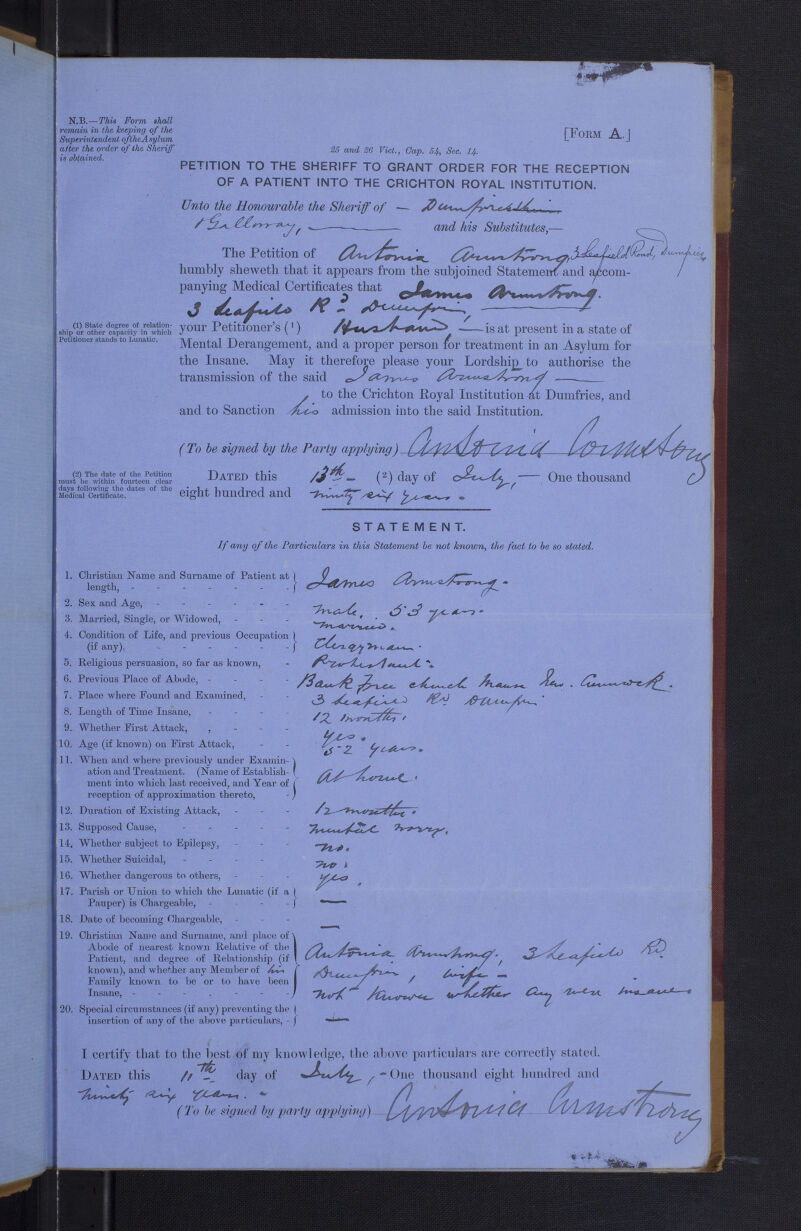 N.B.—This Form shall
remain in the keeping of the
Superintendent of the Asylum
after the order of the Sheriff
is obtained.
[FORM A.]
25 and 26 Vict., Cap. 54, Sec. 14.
PETITION TO THE SHERIFF TO GRANT ORDER FOR THE RECEPTION
OF A PATIENT INTO THE CRICHTON ROYAL INSTITUTION.
Unto the Honourable the Sheriff of — Dumfriesshire
& Galloway, — and his Substitutes,—
The Petition of Antonia Armstrong, 3 Seafield Road, Dumfries,
humbly sheweth that it appears from the subjoined Statement and accom-
panying Medical Certificates that James Armstrong.
3 Seafield Rd. Dumfries, —
(1) State degree of relation-
ship or other capacity in which
Petitioner stands to Lunatic.
your Petitioner's (1) Husband, — is at present in a state of
Mental Derangement, and a proper person for treatment in an Asylum for
the Insane. May it therefore please your Lordship to authorise the
transmission of the said James Armstrong —
, to the Crichton Royal Institution at Dumfries, and
and to Sanction his admission into the said Institution.
(To be signed by the Party applying) Antonia Armstrong
(2) The date of the Petition
must be within fourteen clear
days following the dates of the
Medical Certificate.
DATED this 13th - (2) day of July, — One thousand
eight hundred and ninety six years -
STATEMENT.
If any of the Particulars in this Statement be not known, the fact to be so stated.
1. Christian Name and Surname of Patient at
length, - James Armstrong -
2. Sex and Age, - Male. 53 years -
3. Married, Single, or Widowed, - Married.
4. Condition of Life, and previous Occupation
(if any), - Clergyman.
5. Religious persuasion, so far as known, - Protestant -
6. Previous Place of Abode, - Bank Free Church Manse New Cumnock.
7. Place where Found and Examined, - 3 Seafield Rd Dumfries
8. Length of Time Insane, - 12 months.
9. Whether First Attack, - Yes.
10. Age (if known) on First Attack, - 52 years.
11. When and where previously under Examin-
ation and Treatment. (Name of Establish-
ment into which last received, and Year of
reception of approximation thereto, - At home.
12. Duration of Existing Attack, - 12 months.
13. Supposed Cause, - Mental worry.
14. Whether subject to Epilepsy, - no.
15. Whether Suicidal, - no.
16. Whether dangerous to others, - yes.
17. Parish or Union to which the Lunatic (if a
Pauper) is Chargeable, - —
18. Date of becoming Chargeable, - —
19. Christian Name and Surname, and place of
Abode of nearest known Relative of the
Patient, and degree of Relationship (if
known), and whether any Member of his
Family known to be or to have been
Insane, - Antonia Armstrong, 3 Seafield Rd.
Dumfries, wife -
not known whether any were insane
20. Special circumstances (if any) preventing the
insertion of any of the above particulars, - —
I certify that to the best of my knowledge, the above particulars are correctly stated.
DATED this 11th day of July, - One thousand eight hundred and
ninety six years. -
(To be signed by party applying) Antonia Armstrong